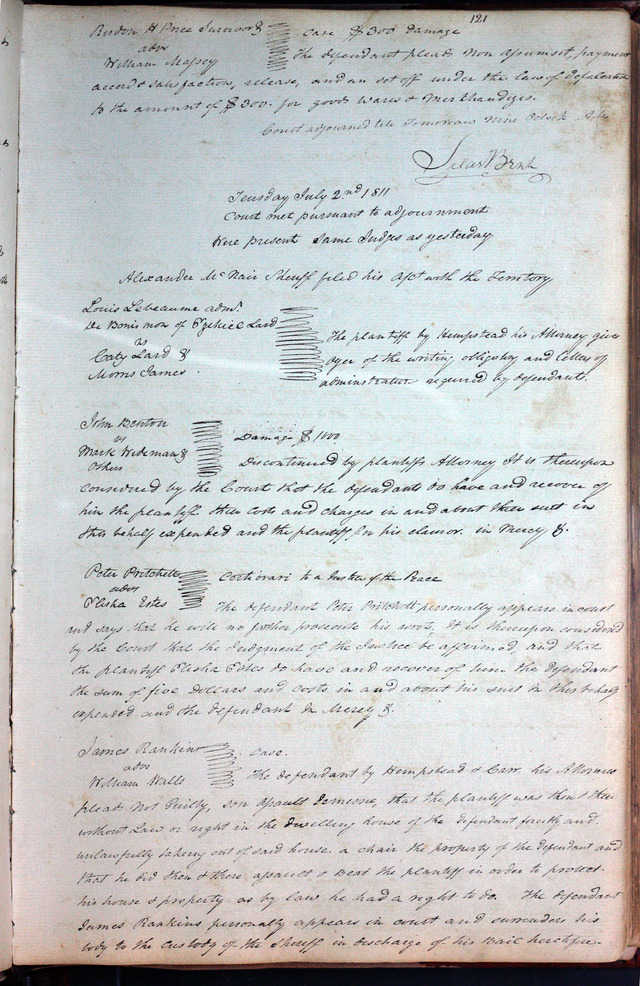 121
Risdon H Price Survivor &
advs
William Massey
Case $300 damage
The defendant pleads non assumsit, payment
accord & satisfaction, release, and an set off under the law of defalcation
to the amount of $300. for goods wares & Merkhandizes.
Court adjourned till Tomorrow Nine Oclock A.M.
Silas Bent
Teusday July 2nd 1811
Court met pursuant to adjournment
Were present Same Judges as yesterday
Alexander McNair Sheriff filed his Act with the Territory
Louis Lebeaume admr.
De Bonis non of Ezekiel Lard
vs
Caty Lard &
Morris James
The plaintiff by Hempstead his Attorney gives
oyer of the writing obligatory and letters of
administration required by defendants.
John Benton
vs
Mark Wideman &
Others
Damage $1000
Discontinued by plaintiffs Attorney It is thereupon
considered by the Court that the defendants do have and recover of
him the plaintiff their costs and charges in and about their suit in
this behalf expended and the plaintiff for his clamor in Mercy &.
Peter Pritchett
advs
Elisha Estes
Certiorari to a Justice of the Peace
The defendant Peter Pritchett personally appears in court
and says that he will no farther prosecute his writ, It is thereupon considered
by the Court that the Judgment of the Justice be affirmed, and that
the plaintiff Elisha Estes do have and recover of him the defendant
the sum of five Dollars and costs in and about his suit in this behalf
expended and the defendant in Mercy &.
James Rankins
advs
William Walls
Case.
The defendant by Hempstead & Carr his Attornies
pleads not Guilty, son assault demesne, that the plaintiff was then & there
without Law or right in the dwelling house of the defendant forcibly and
unlawfully takeing out of said house a chair the property of the defendant and
that he did then & there assault & beat the plaintiff in order to protect
his house & property as by law he had a right to do. The defendant
James Rankins personally appears in court and surrenders his
body to the custody of the Sheriff in discharge of his Bail heretofore.